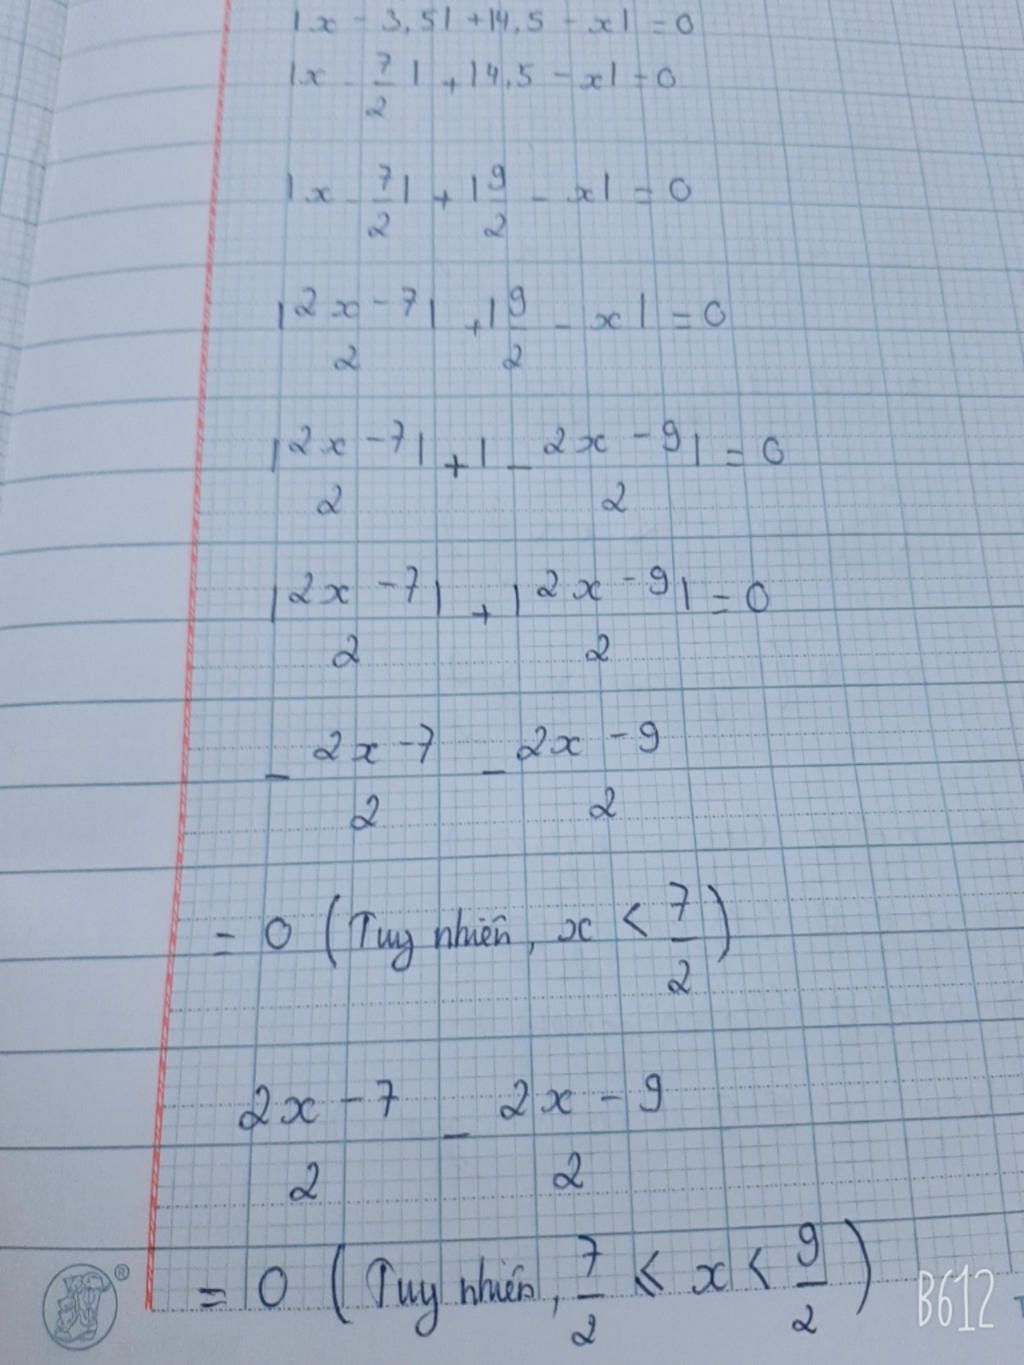 |x - 3,5| + |4,5 - x| = 0
|x - 7/2| + |4,5 - x| = 0
|x - 7/2| + |9/2 - x| = 0
|2x - 7/2| + |9/2 - x| = 0
|2x - 7/2| + | - 2x - 9/2| = 0
|2x - 7/2| + |2x - 9/2| = 0
- 2x - 7/2 - 2x - 9/2
= 0 (Tuy nhiên, x < 7/2)
2x - 7/2 - 2x - 9/2
= 0 (Tuy nhiên, 7/2 < x < 9/2)
B612